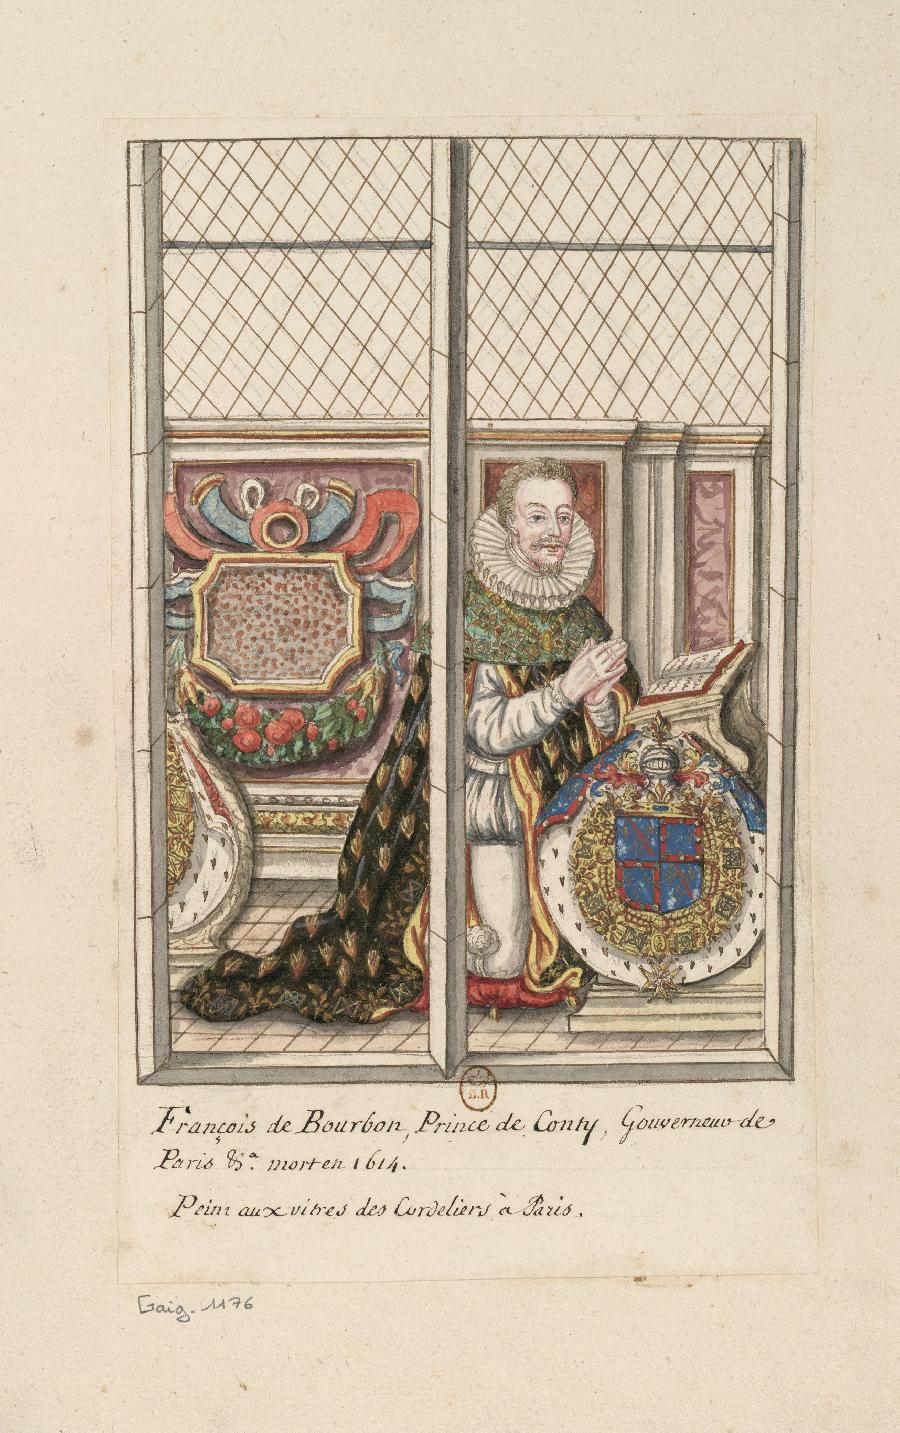 François de Bourbon, Prince de Conty, Gouverneur de
Paris &c.a mort en 1614.
Peint aux vitres des Cordeliers à Paris.
B.R
Gaig. 1176